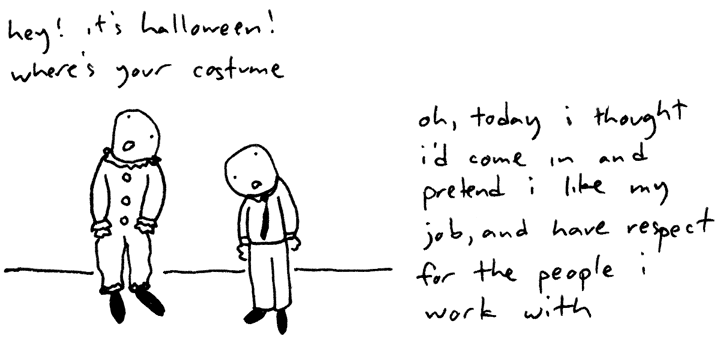 hey! it's halloween!
where's your costume
oh, today i thought
i'd come in and
pretend i like my
job, and have respect
for the people i
work with